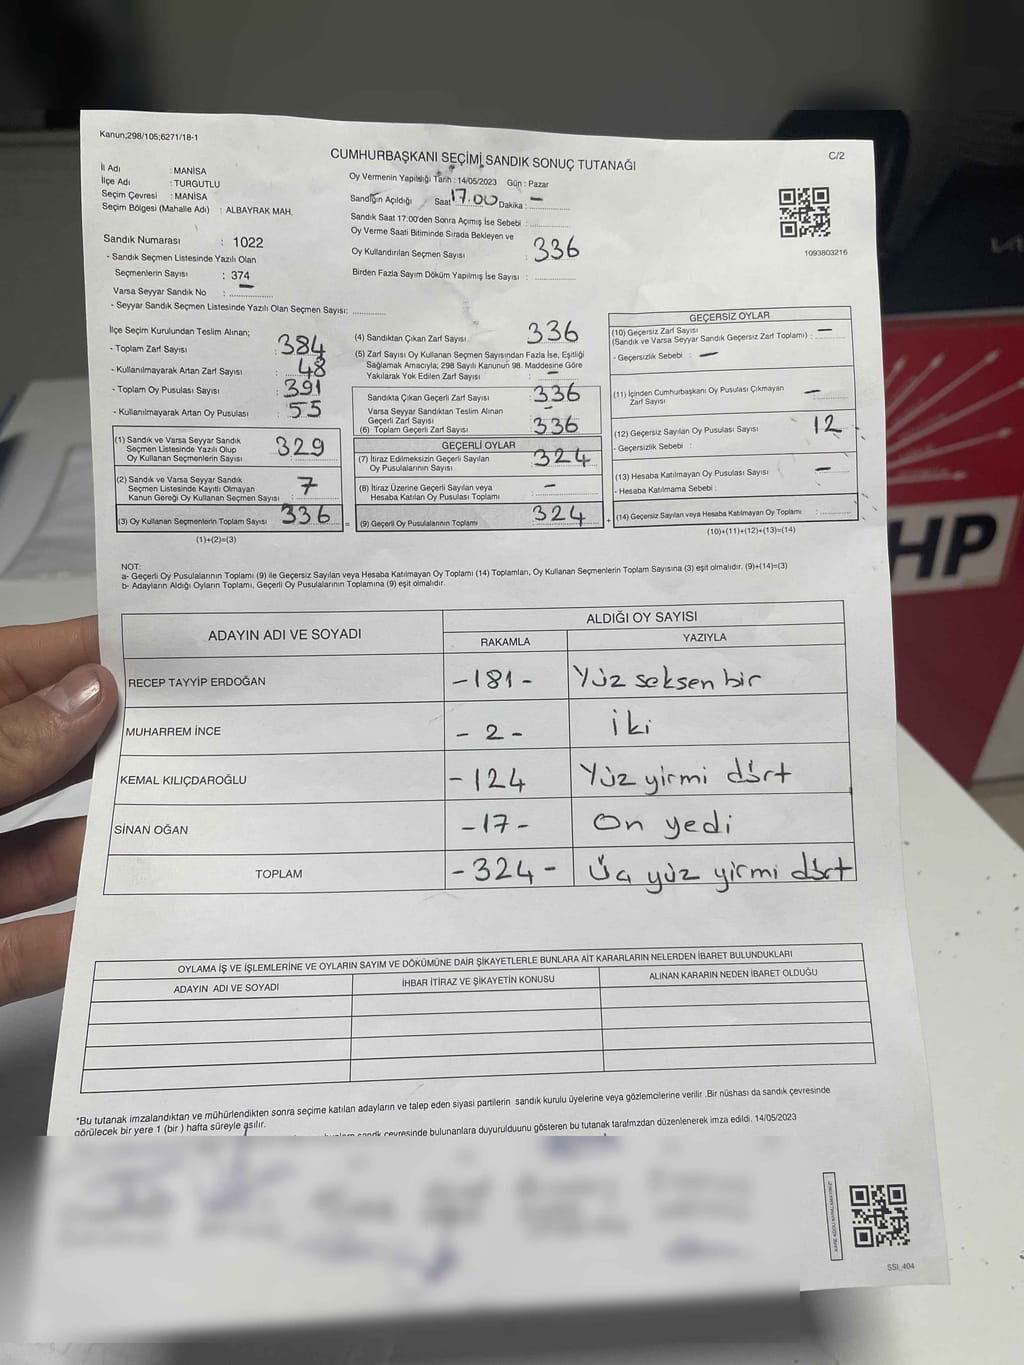 Kanun;298/105;6271/18-1
C/2
CUMHURBAŞKANI SEÇİMİ SANDIK SONUÇ TUTANAĞI
İl Adı : MANİSA
İlçe Adı : TURGUTLU
Seçim Çevresi : MANİSA
Seçim Bölgesi (Mahalle Adı) : ALBAYRAK MAH.
Sandık Numarası : 1022
- Sandık Seçmen Listesinde Yazılı Olan
Seçmenlerin Sayısı : 374
Varsa Seyyar Sandık No : —
- Seyyar Sandık Seçmen Listesinde Yazılı Olan Seçmen Sayısı:
Oy Vermenin Yapıldığı Tarih : 14/05/2023 Gün : Pazar
Sandığın Açıldığı Saat 17.00 Dakika : —
Sandık Saat 17:00'den Sonra Açımış İse Sebebi :
Oy Verme Saati Bitiminde Sırada Bekleyen ve
Oy Kullandırılan Seçmen Sayısı : 336
Birden Fazla Sayım Döküm Yapılmış İse Sayısı :
1093803216
İlçe Seçim Kurulundan Teslim Alınan;
- Toplam Zarf Sayısı : 384
- Kullanılmayarak Artan Zarf Sayısı : 48
- Toplam Oy Pusulası Sayısı : 391
- Kullanılmayarak Artan Oy Pusulası : 55
(1) Sandık ve Varsa Seyyar Sandık
Seçmen Listesinde Yazılı Olup
Oy Kullanan Seçmenlerin Sayısı : 329
(2) Sandık ve Varsa Seyyar Sandık
Seçmen Listesinde Kayıtlı Olmayan
Kanun Gereği Oy Kullanan Seçmen Sayısı : 7
(3) Oy Kullanan Seçmenlerin Toplam Sayısı : 336
(1)+(2)=(3)
(4) Sandıktan Çıkan Zarf Sayısı : 336
(5) Zarf Sayısı Oy Kullanan Seçmen Sayısından Fazla İse, Eşitliği
Sağlamak Amacıyla; 298 Sayılı Kanunun 98. Maddesine Göre
Yakılarak Yok Edilen Zarf Sayısı : —
Sandıkta Çıkan Geçerli Zarf Sayısı : 336
Varsa Seyyar Sandıktan Teslim Alınan
Geçerli Zarf Sayısı : —
(6) Toplam Geçerli Zarf Sayısı : 336
GEÇERLİ OYLAR
(7) İtiraz Edilmeksizin Geçerli Sayılan
Oy Pusulalarının Sayısı : 324
(8) İtiraz Üzerine Geçerli Sayılan veya
Hesaba Katılan Oy Pusulası Toplamı : —
(9) Geçerli Oy Pusulalarının Toplamı : 324
GEÇERSİZ OYLAR
(10) Geçersiz Zarf Sayısı : —
(Sandık ve Varsa Seyyar Sandık Geçersiz Zarf Toplamı)
- Geçersizlik Sebebi : —
(11) İçinden Cumhurbaşkanı Oy Pusulası Çıkmayan
Zarf Sayısı : —
(12) Geçersiz Sayılan Oy Pusulası Sayısı : 12
- Geçersizlik Sebebi :
(13) Hesaba Katılmayan Oy Pusulası Sayısı : —
- Hesaba Katılmama Sebebi :
(14) Geçersiz Sayılan veya Hesaba Katılmayan Oy Toplamı :
(10)+(11)+(12)+(13)=(14)
NOT:
a- Geçerli Oy Pusulalarının Toplamı (9) ile Geçersiz Sayılan veya Hesaba Katılmayan Oy Toplamı (14) Toplamları, Oy Kullanan Seçmenlerin Toplam Sayısına (3) eşit olmalıdır. (9)+(14)=(3)
b- Adayların Aldığı Oyların Toplamı, Geçerli Oy Pusulalarının Toplamına (9) eşit olmalıdır.
HP
ADAYIN ADI VE SOYADI
ALDIĞI OY SAYISI
RAKAMLA YAZIYLA
RECEP TAYYİP ERDOĞAN -181- Yüz seksen bir
MUHARREM İNCE - 2 - iki
KEMAL KILIÇDAROĞLU -124 Yüz yirmi dört
SİNAN OĞAN -17- On yedi
TOPLAM -324- Üç yüz yirmi dört
OYLAMA İŞ VE İŞLEMLERİNE VE OYLARIN SAYIM VE DÖKÜMÜNE DAİR ŞİKAYETLERLE BUNLARA AİT KARARLARIN NELERDEN İBARET BULUNDUKLARI
ADAYIN ADI VE SOYADI İHBAR İTİRAZ VE ŞİKAYETİN KONUSU ALINAN KARARIN NEDEN İBARET OLDUĞU
*Bu tutanak imzalandıktan ve mühürlendikten sonra seçime katılan adayların ve talep eden siyasi partilerin sandık kurulu üyelerine veya gözlemcilerine verilir .Bir nüshası da sandık çevresinde
görülecek bir yere 1 (bir ) hafta süreyle asılır.
çevresinde bulunanlara duyurulduunu gösteren bu tutanak tarafımızdan düzenlenerek imza edildi. 14/05/2023
SSI_404